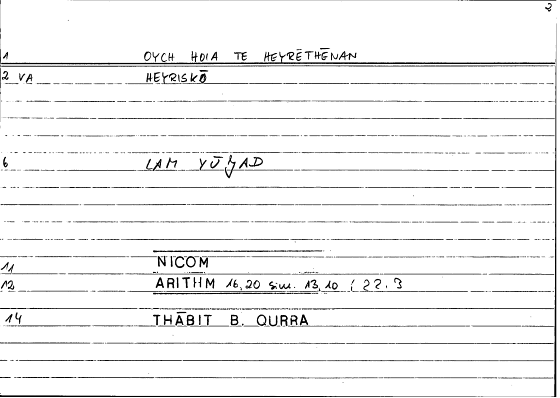 2
1 OYCH HOIA TE HEYRĒTHĒNAN
2 VA HEYRISKŌ
6 LAM YŪǦAD
11 NICOM
12 ARITHM 16,20 sim. 13,10 / 22.3
14 THĀBIT B. QURRA